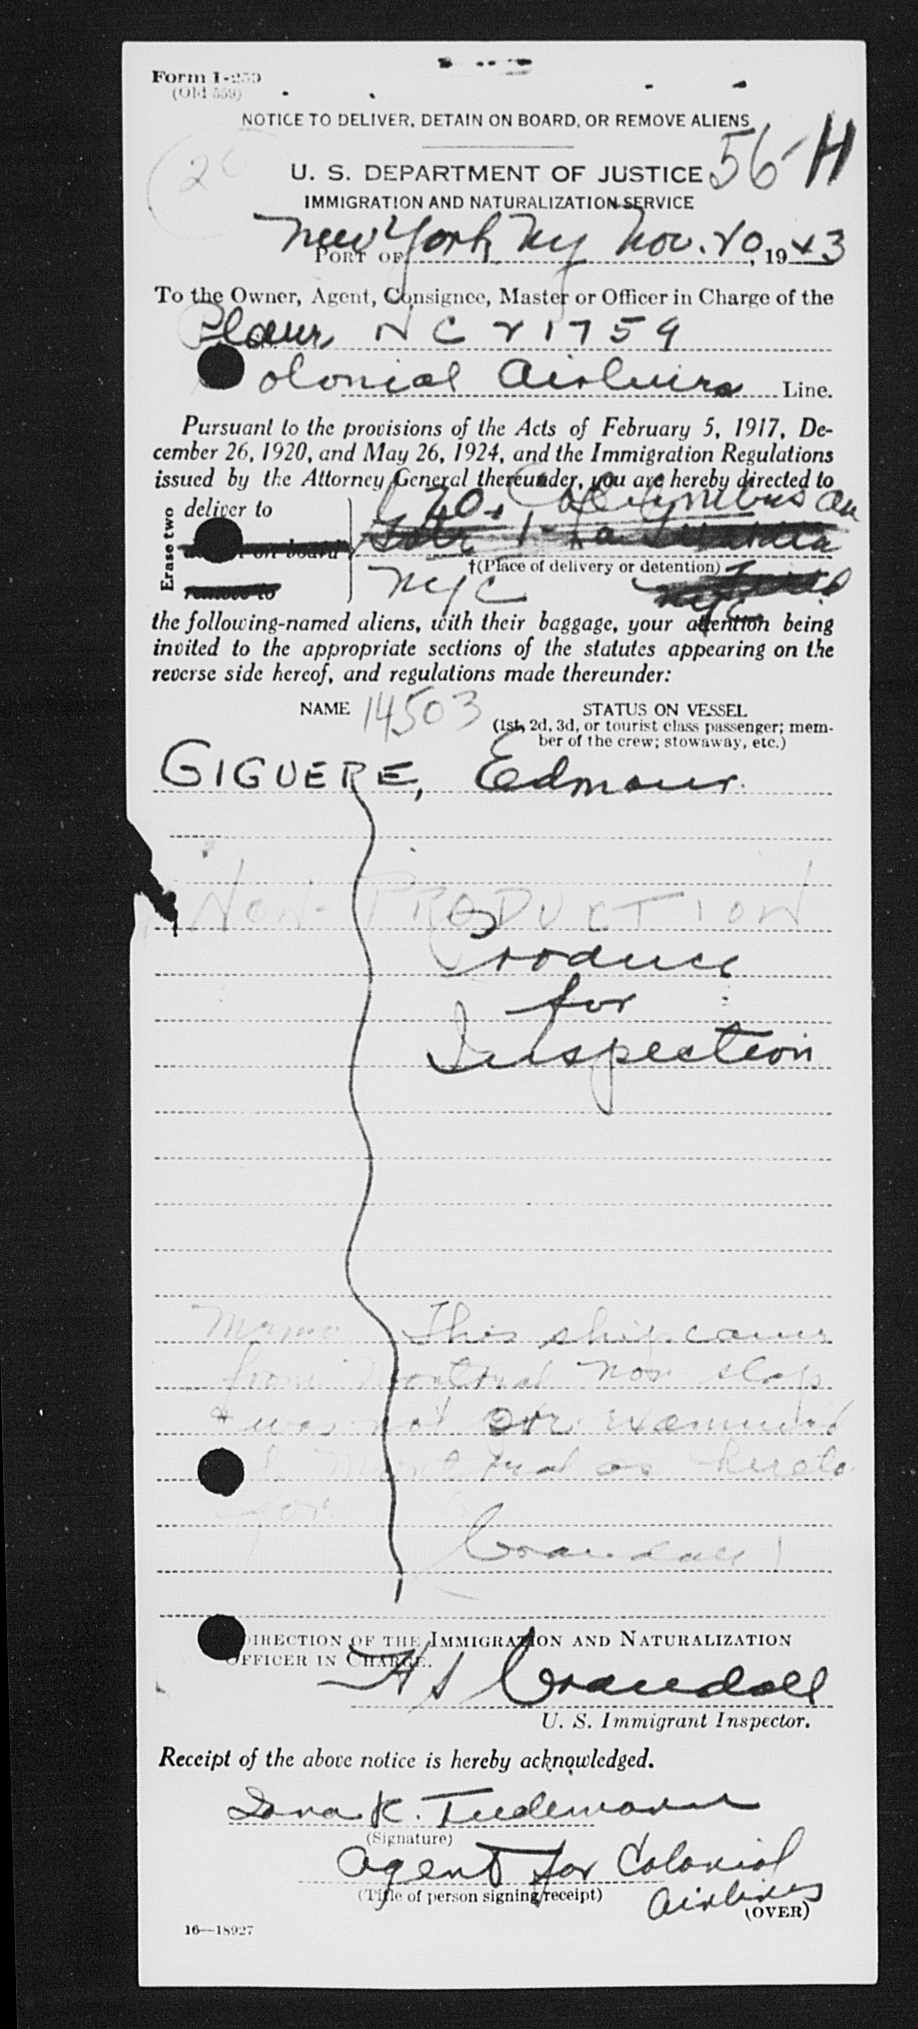 Form I-259
(Old 559)
NOTICE TO DELIVER, DETAIN ON BOARD, OR REMOVE ALIENS
20
56-H
U. S. DEPARTMENT OF JUSTICE
IMMIGRATION AND NATURALIZATION SERVICE
PORT OF New York, NY Nov. 20, 1943
To the Owner, Agent, Consignee, Master or Officer in Charge of the
Plane NC 21759
Colonial Airlines Line.
Pursuant to the provisions of the Acts of February 5, 1917, De-
cember 26, 1920, and May 26, 1924, and the Immigration Regulations
issued by the Attorney General thereunder, you are hereby directed to
Erase two
deliver to
70, Columbus av
on board
†(Place of delivery or detention)
remove to
NYC
NYC
the following-named aliens, with their baggage, your attention being
invited to the appropriate sections of the statutes appearing on the
reverse side hereof, and regulations made thereunder:
NAME 14503
STATUS ON VESSEL
(1st, 2d, 3d, or tourist class passenger; mem-
ber of the crew; stowaway, etc.)
GIGUERE, Edmour.
NON-PRODUCTION
Produce
for
Inspection
Memo This ship came
from Montreal non stop
& was not examined
Montreal as hereto
for
Crandall
DIRECTION OF THE IMMIGRATION AND NATURALIZATION
OFFICER IN CHARGE.
H S Crandall
U. S. Immigrant Inspector.
Receipt of the above notice is hereby acknowledged.
K. Tiedemann
(Signature)
Agent for Colonial
Airlines
(Title of person signing receipt)
(OVER)
16—18927